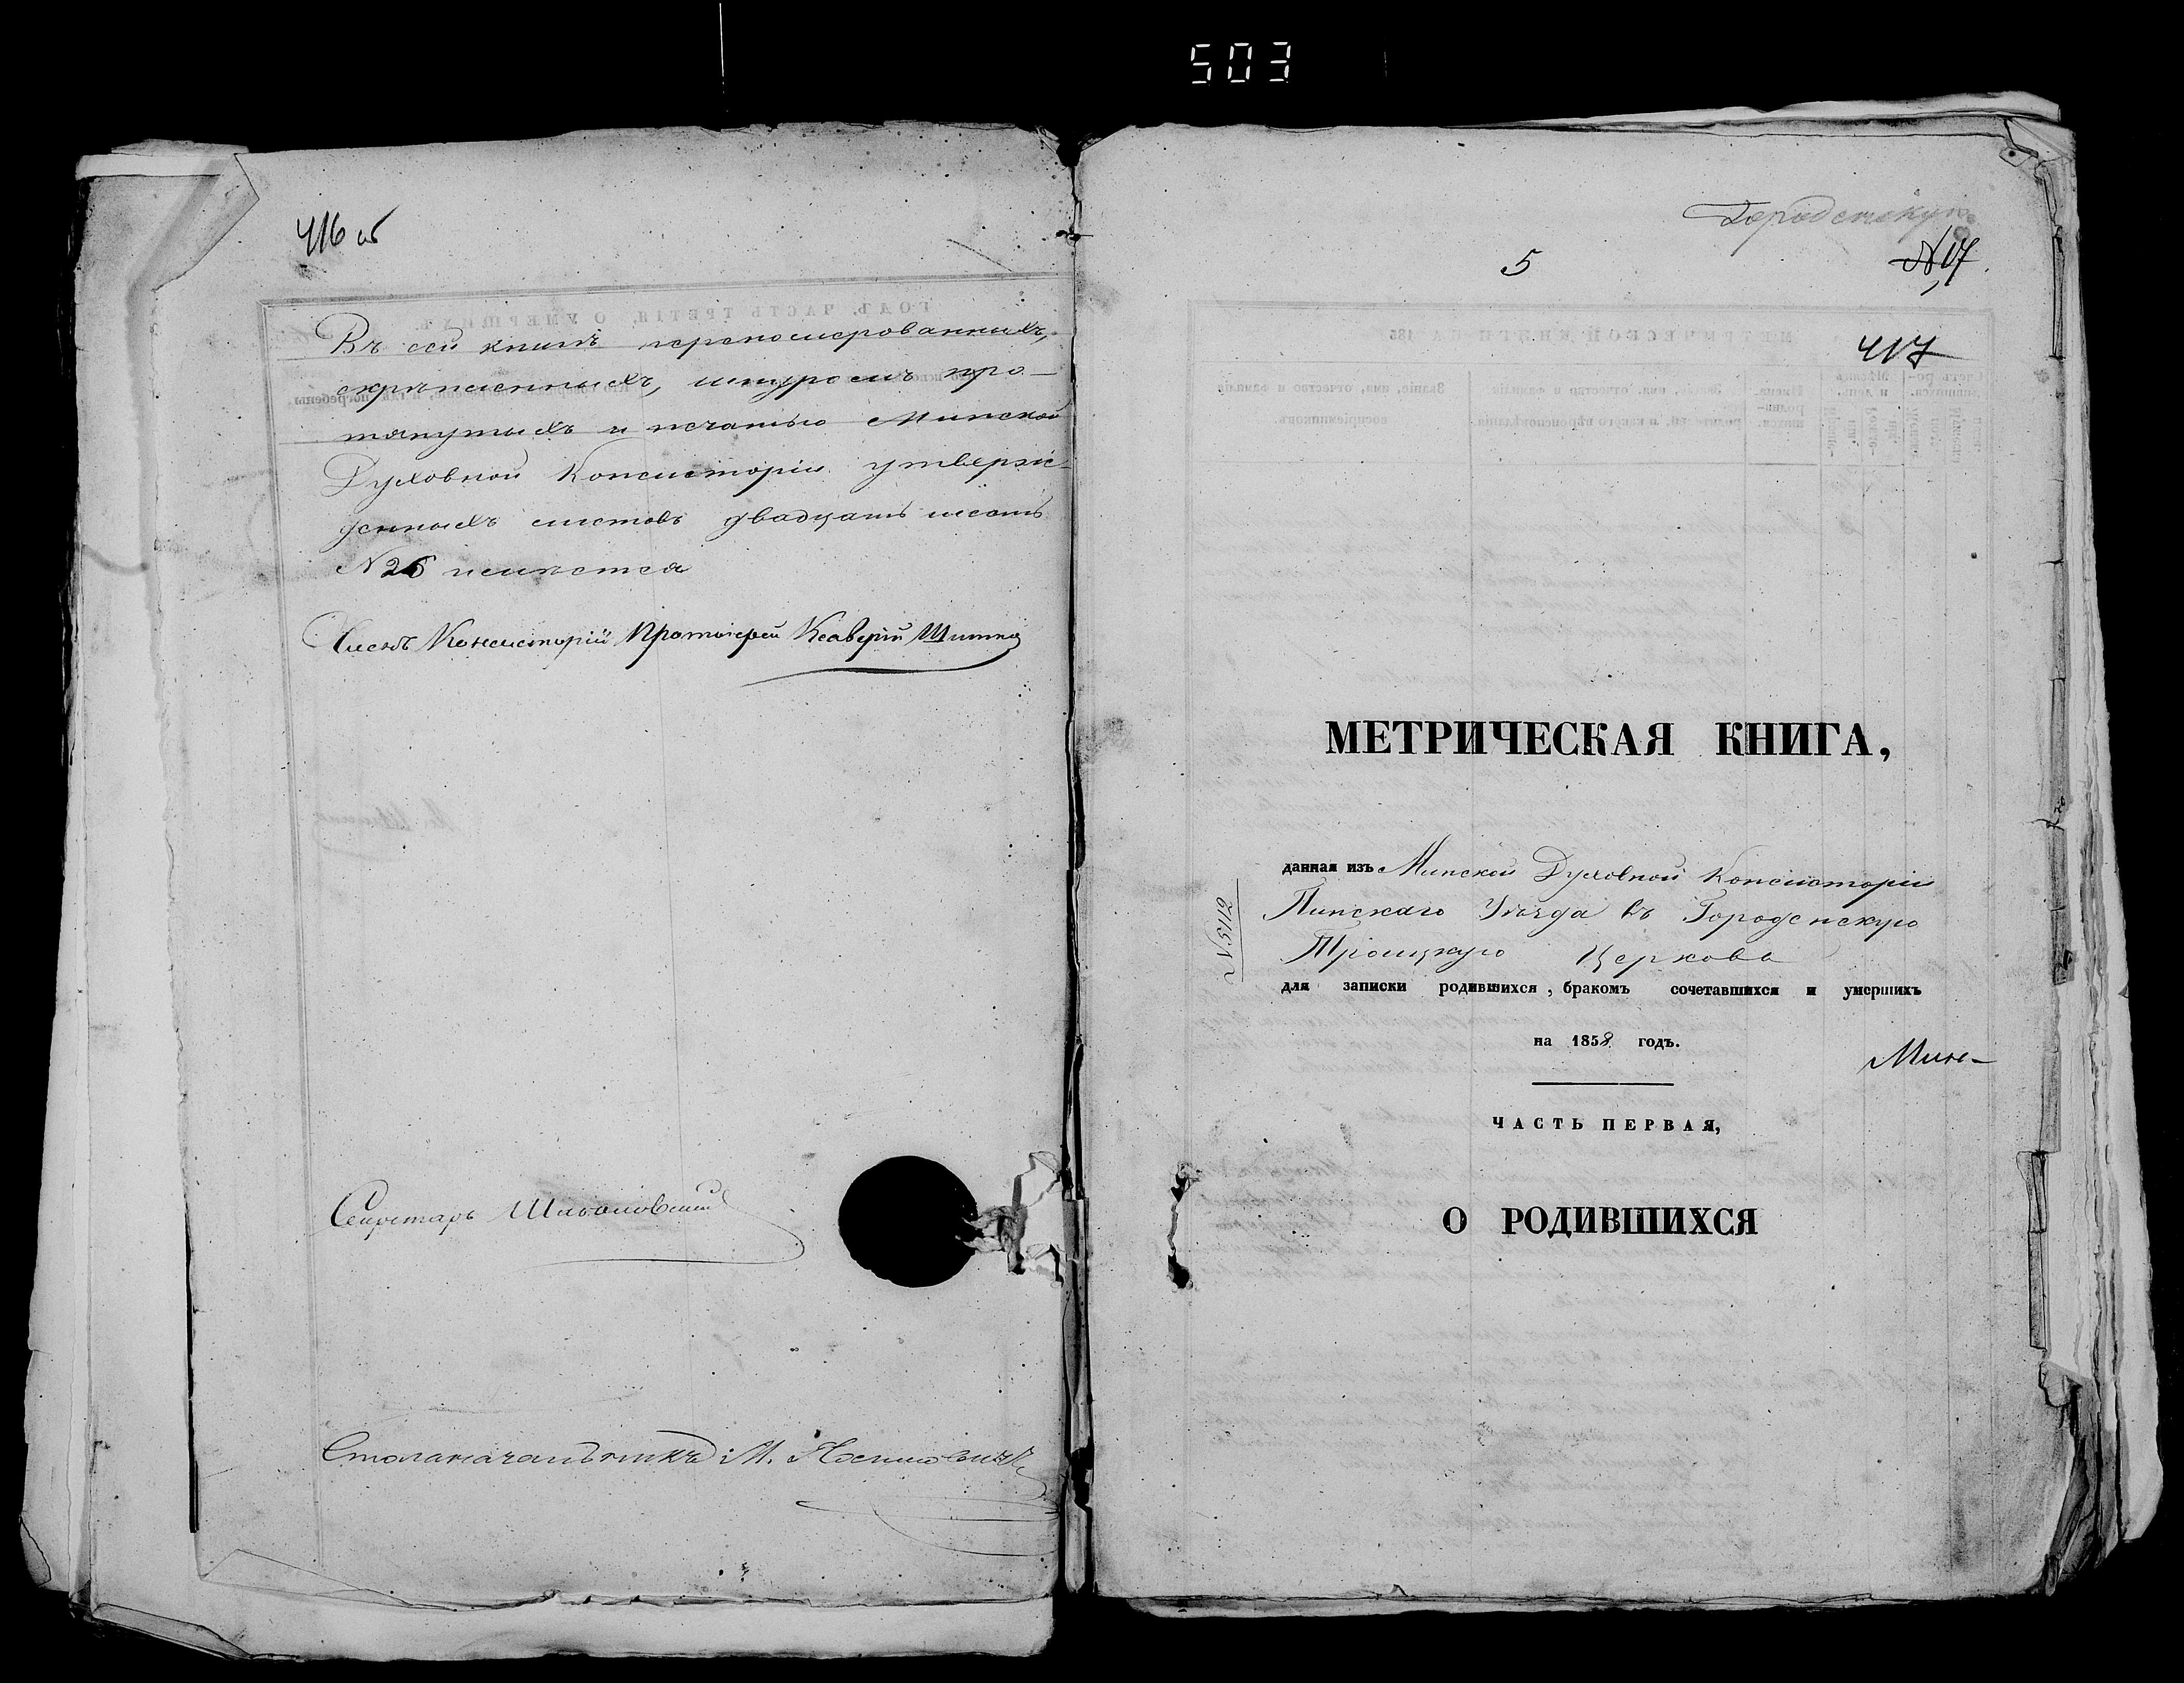 503
416 об
Въ сей книгѣ перенумерованныхъ,
скрѣпленныхъ, шнуромъ про-
тянутыхъ и печатью Минской
Духовной Консисторіи утверж-
денныхъ листовъ двадцать шесть
N 26 имѣется
Членъ Консисторіи Протоіерей Ксаверій
Секретарь
Столоначальникъ М.
5
N 17
417
МЕТРИЧЕСКАЯ КНИГА,
данная изъ Минской Духовной Консисторіи
Пинскаго Уѣзда въ Городенскую
Троицкую Церковь
для записки родившихся, бракомъ сочетавшихся и умершихъ
на 1858 годъ.
Мин-
ЧАСТЬ ПЕРВАЯ,
О РОДИВШИХСЯ